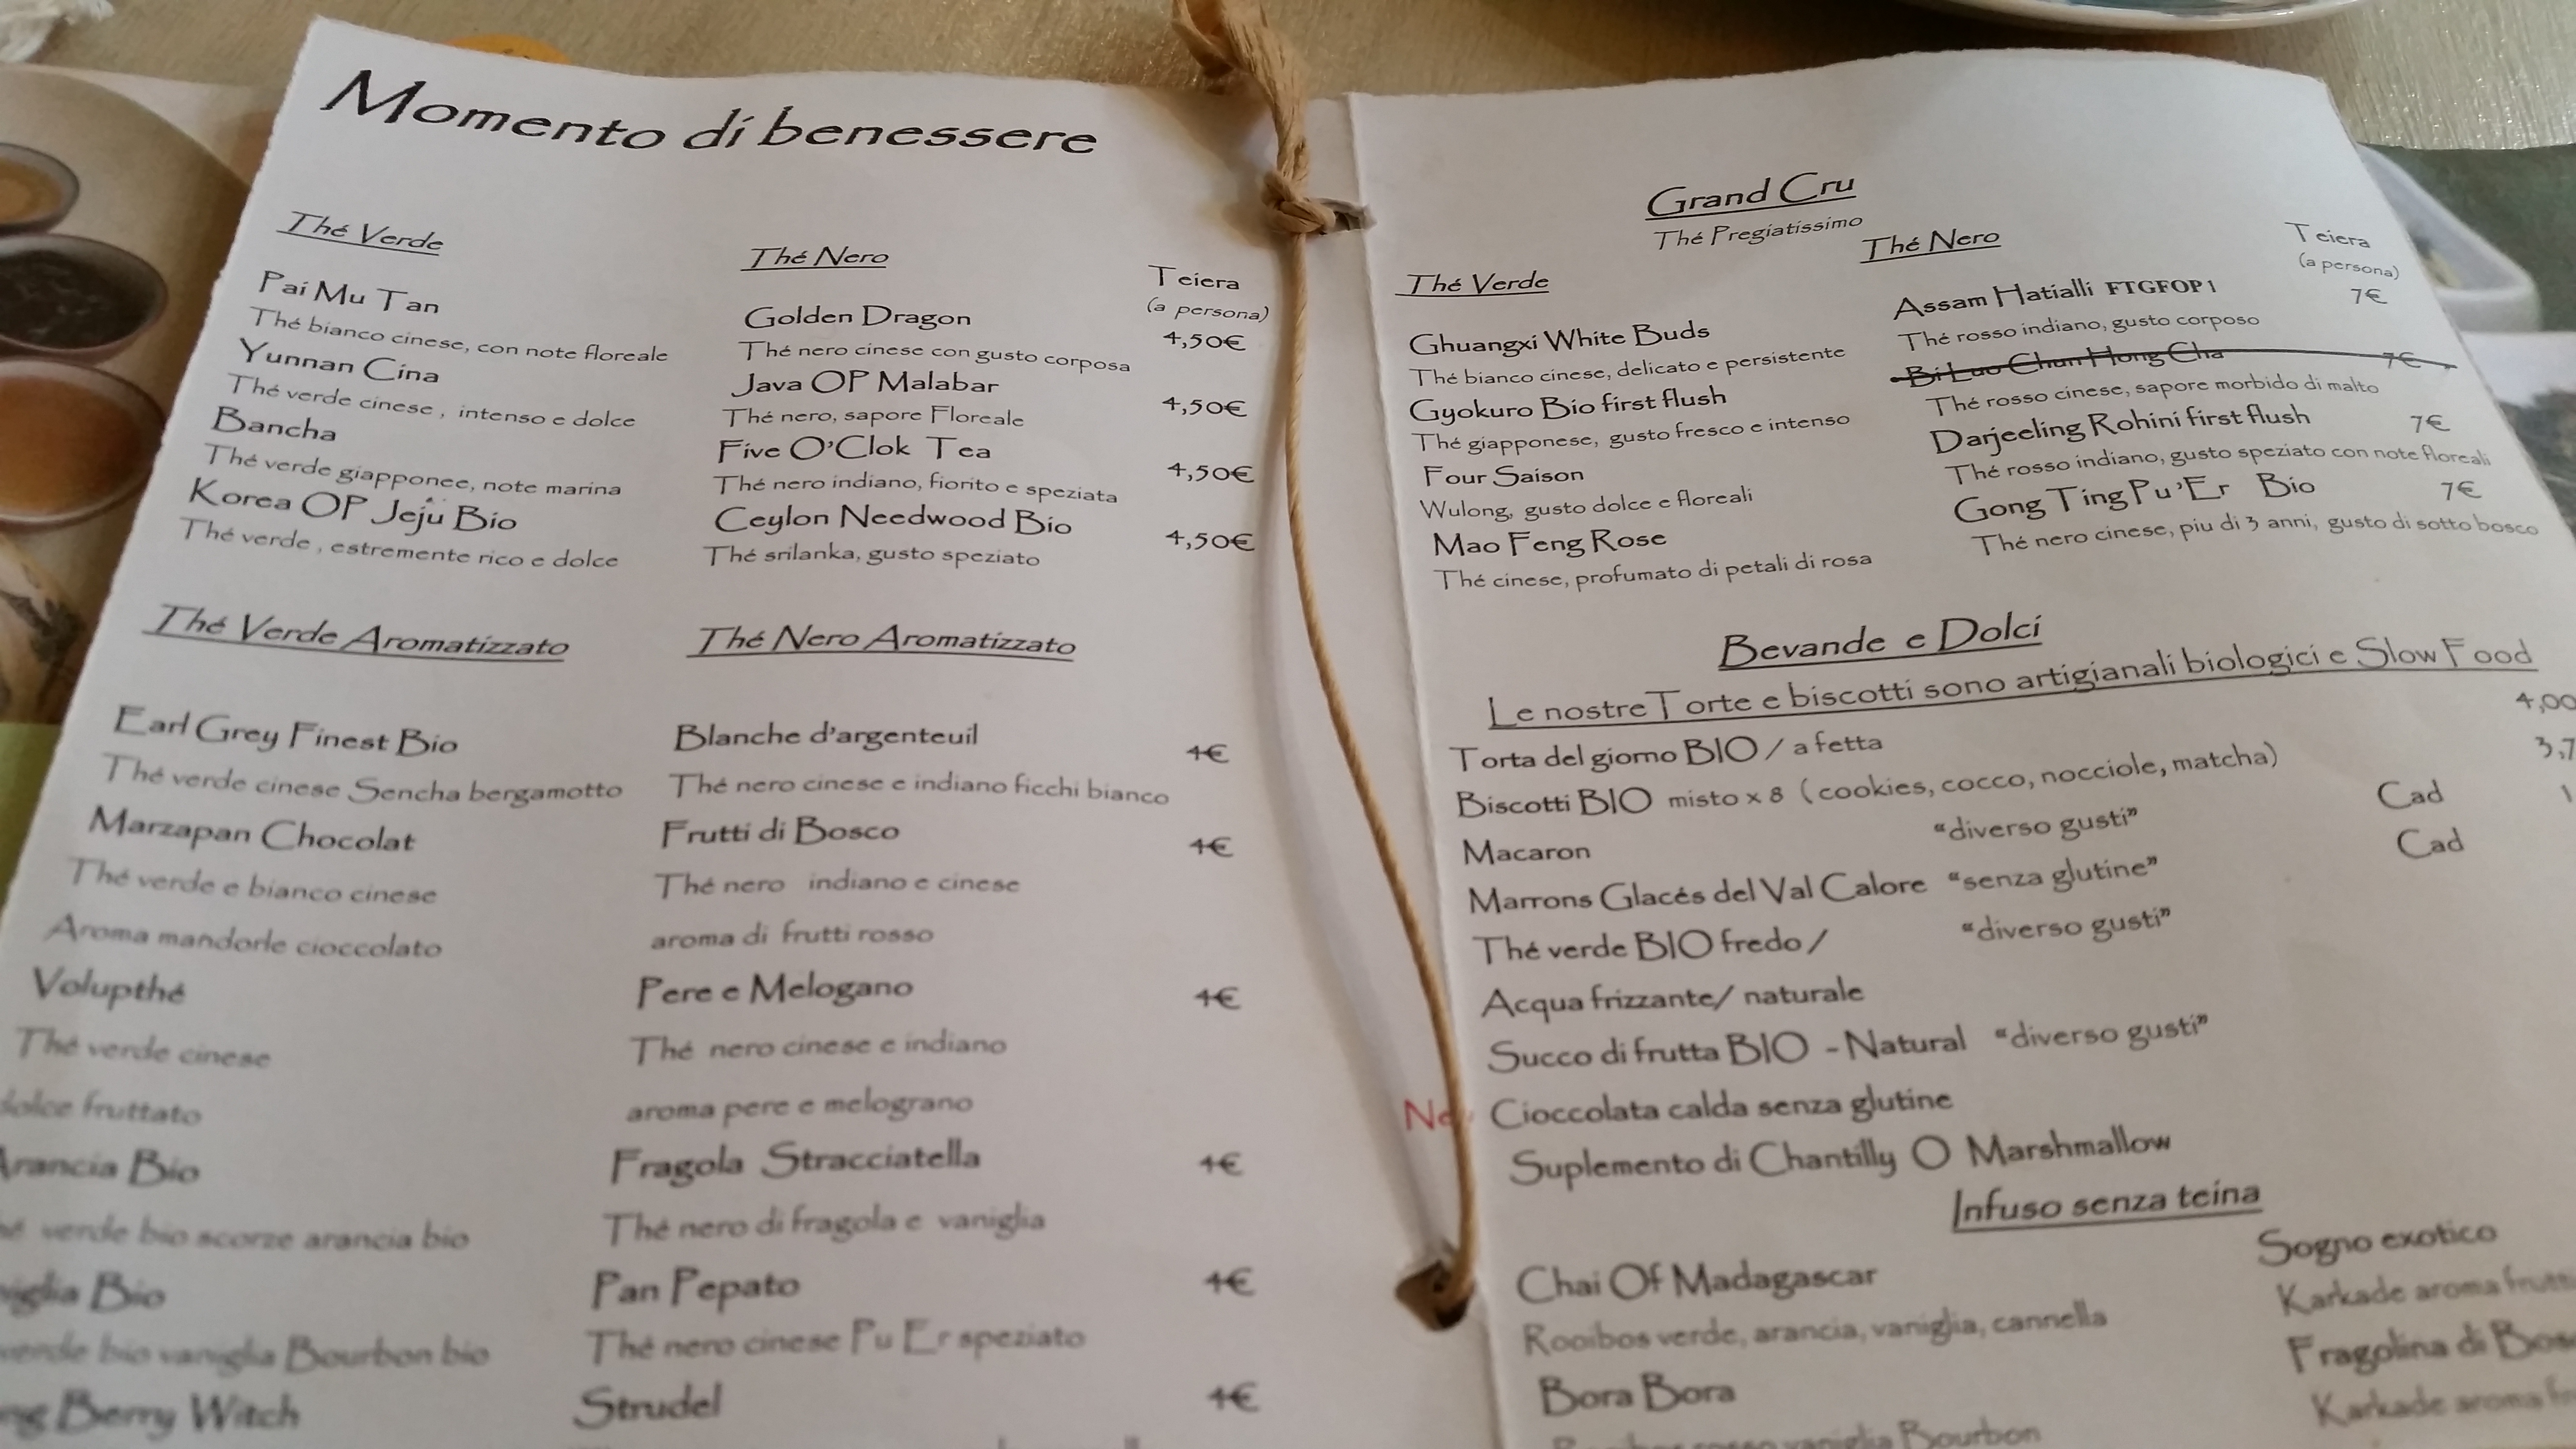 Momento di benessere
Thé Verde
Pai Mu Tan
Thé bianco cinese, con note floreale
Yunnan Cina
Thé verde cinese, intenso e dolce
Bancha
Thé verde giapponee, note marina
Korea OP Jeju Bio
Thé verde, estremente rico e dolce
Thé Nero
Teiera
(a persona)
Golden Dragon 4,50€
Thé nero cinese con gusto corposa
Java OP Malabar 4,50€
Thé nero, sapore Floreale
Five O'Clok Tea 4,50€
Thé nero indiano, fiorito e speziata
Ceylon Needwood Bio 4,50€
Thé srilanka, gusto speziato
Thé Verde Aromatizzato
Earl Grey Finest Bio
Thé verde cinese Sencha bergamotto
Marzapan Chocolat
Thé verde e bianco cinese
Aroma mandorle cioccolato
Volupthé
Thé verde cinese
dolce fruttato
Arancia Bio
verde bio scorze arancia bio
Bio
verde bio vaniglia Bourbon bio
Berry Witch
Thé Nero Aromatizzato
Blanche d'argenteuil 4€
Thé nero cinese e indiano ficchi bianco
Frutti di Bosco 4€
Thé nero indiano e cinese
aroma di frutti rosso
Pere e Melogano 4€
Thé nero cinese e indiano
aroma pere e melograno
Fragola Stracciatella 4€
Thé nero di fragola e vaniglia
Pan Pepato 4€
Thé nero cinese Pu Er speziato
Strudel 4€
Grand Cru
Thé Pregiatissimo
Thé Verde
Ghuangxi White Buds
Thé bianco cinese, delicato e persistente
Gyokuro Bio first flush
Thé giapponese, gusto fresco e intenso
Four Saison
Wulong, gusto dolce e floreali
Mao Feng Rose
Thé cinese, profumato di petali di rosa
Thé Nero
Teiera
(a persona)
Assam Hatialli FTGFOP1 7€
Thé rosso indiano, gusto corposo
Bi Luo Chun Hong Cha 7€
Thé rosso cinese, sapore morbido di malto
Darjeeling Rohini first flush 7€
Thé rosso indiano, gusto speziato con note floreali
Gong Ting Pu'Er Bio 7€
Thé nero cinese, piu di 3 anni, gusto di sotto bosco
Bevande e Dolci
Le nostre Torte e biscotti sono artigianali biologici e Slow Food
Torta del giorno BIO / a fetta 4,00
Biscotti BIO misto x 8 (cookies, cocco, nocciole, matcha) 3,7
Macaron "diverso gusti" Cad 1
Marrons Glacés del Val Calore "senza glutine" Cad
Thé verde BIO fredo / "diverso gusti"
Acqua frizzante/ naturale
Succo di frutta BIO - Natural "diverso gusti"
Cioccolata calda senza glutine
Suplemento di Chantilly O Marshmallow
Infuso senza teina
Chai Of Madagascar
Rooibos verde, arancia, vaniglia, cannella
Bora Bora
Rooibos rosso vaniglia Bourbon
Sogno exotico
Karkade aroma frutti
Fragolina di
Karkade aroma